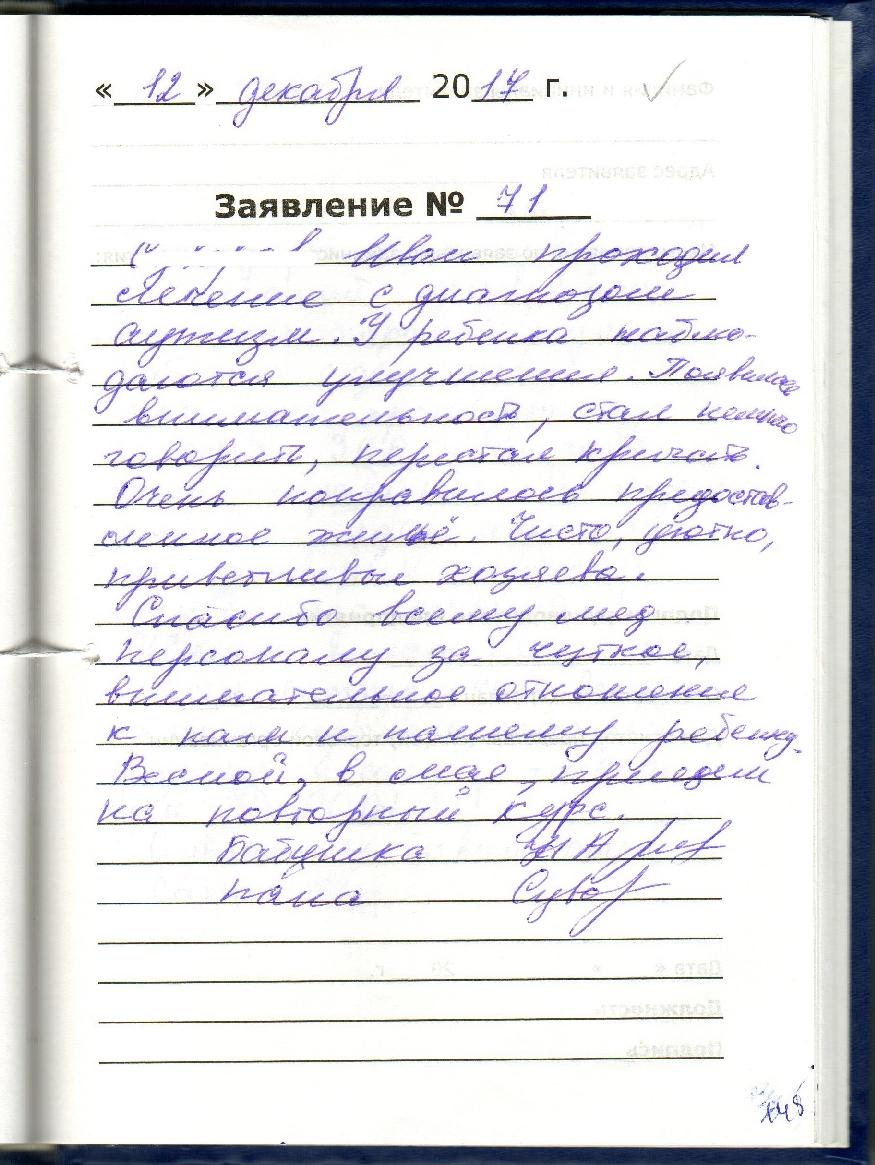 « 12 » декабря 2017 г.
Заявление № 71
Иван проходил
лечение с диагнозом
аутизм. У ребенка наблю-
даются улучшения. Появилась
внимательность, стал немного
говорить, перестал кричать.
Очень понравилось предостав-
ленное жильё. Чисто, уютно,
приветливые хозяева.
Спасибо всему мед
персоналу за чуткое,
внимательное отношение
к нам и нашему ребенку.
Весной, в мае, приедем
на повторный курс.
Бабушка
папа
Фамилия и инициалы
Адрес заявителя
Дата « » 20 г.
Должность
Подпись